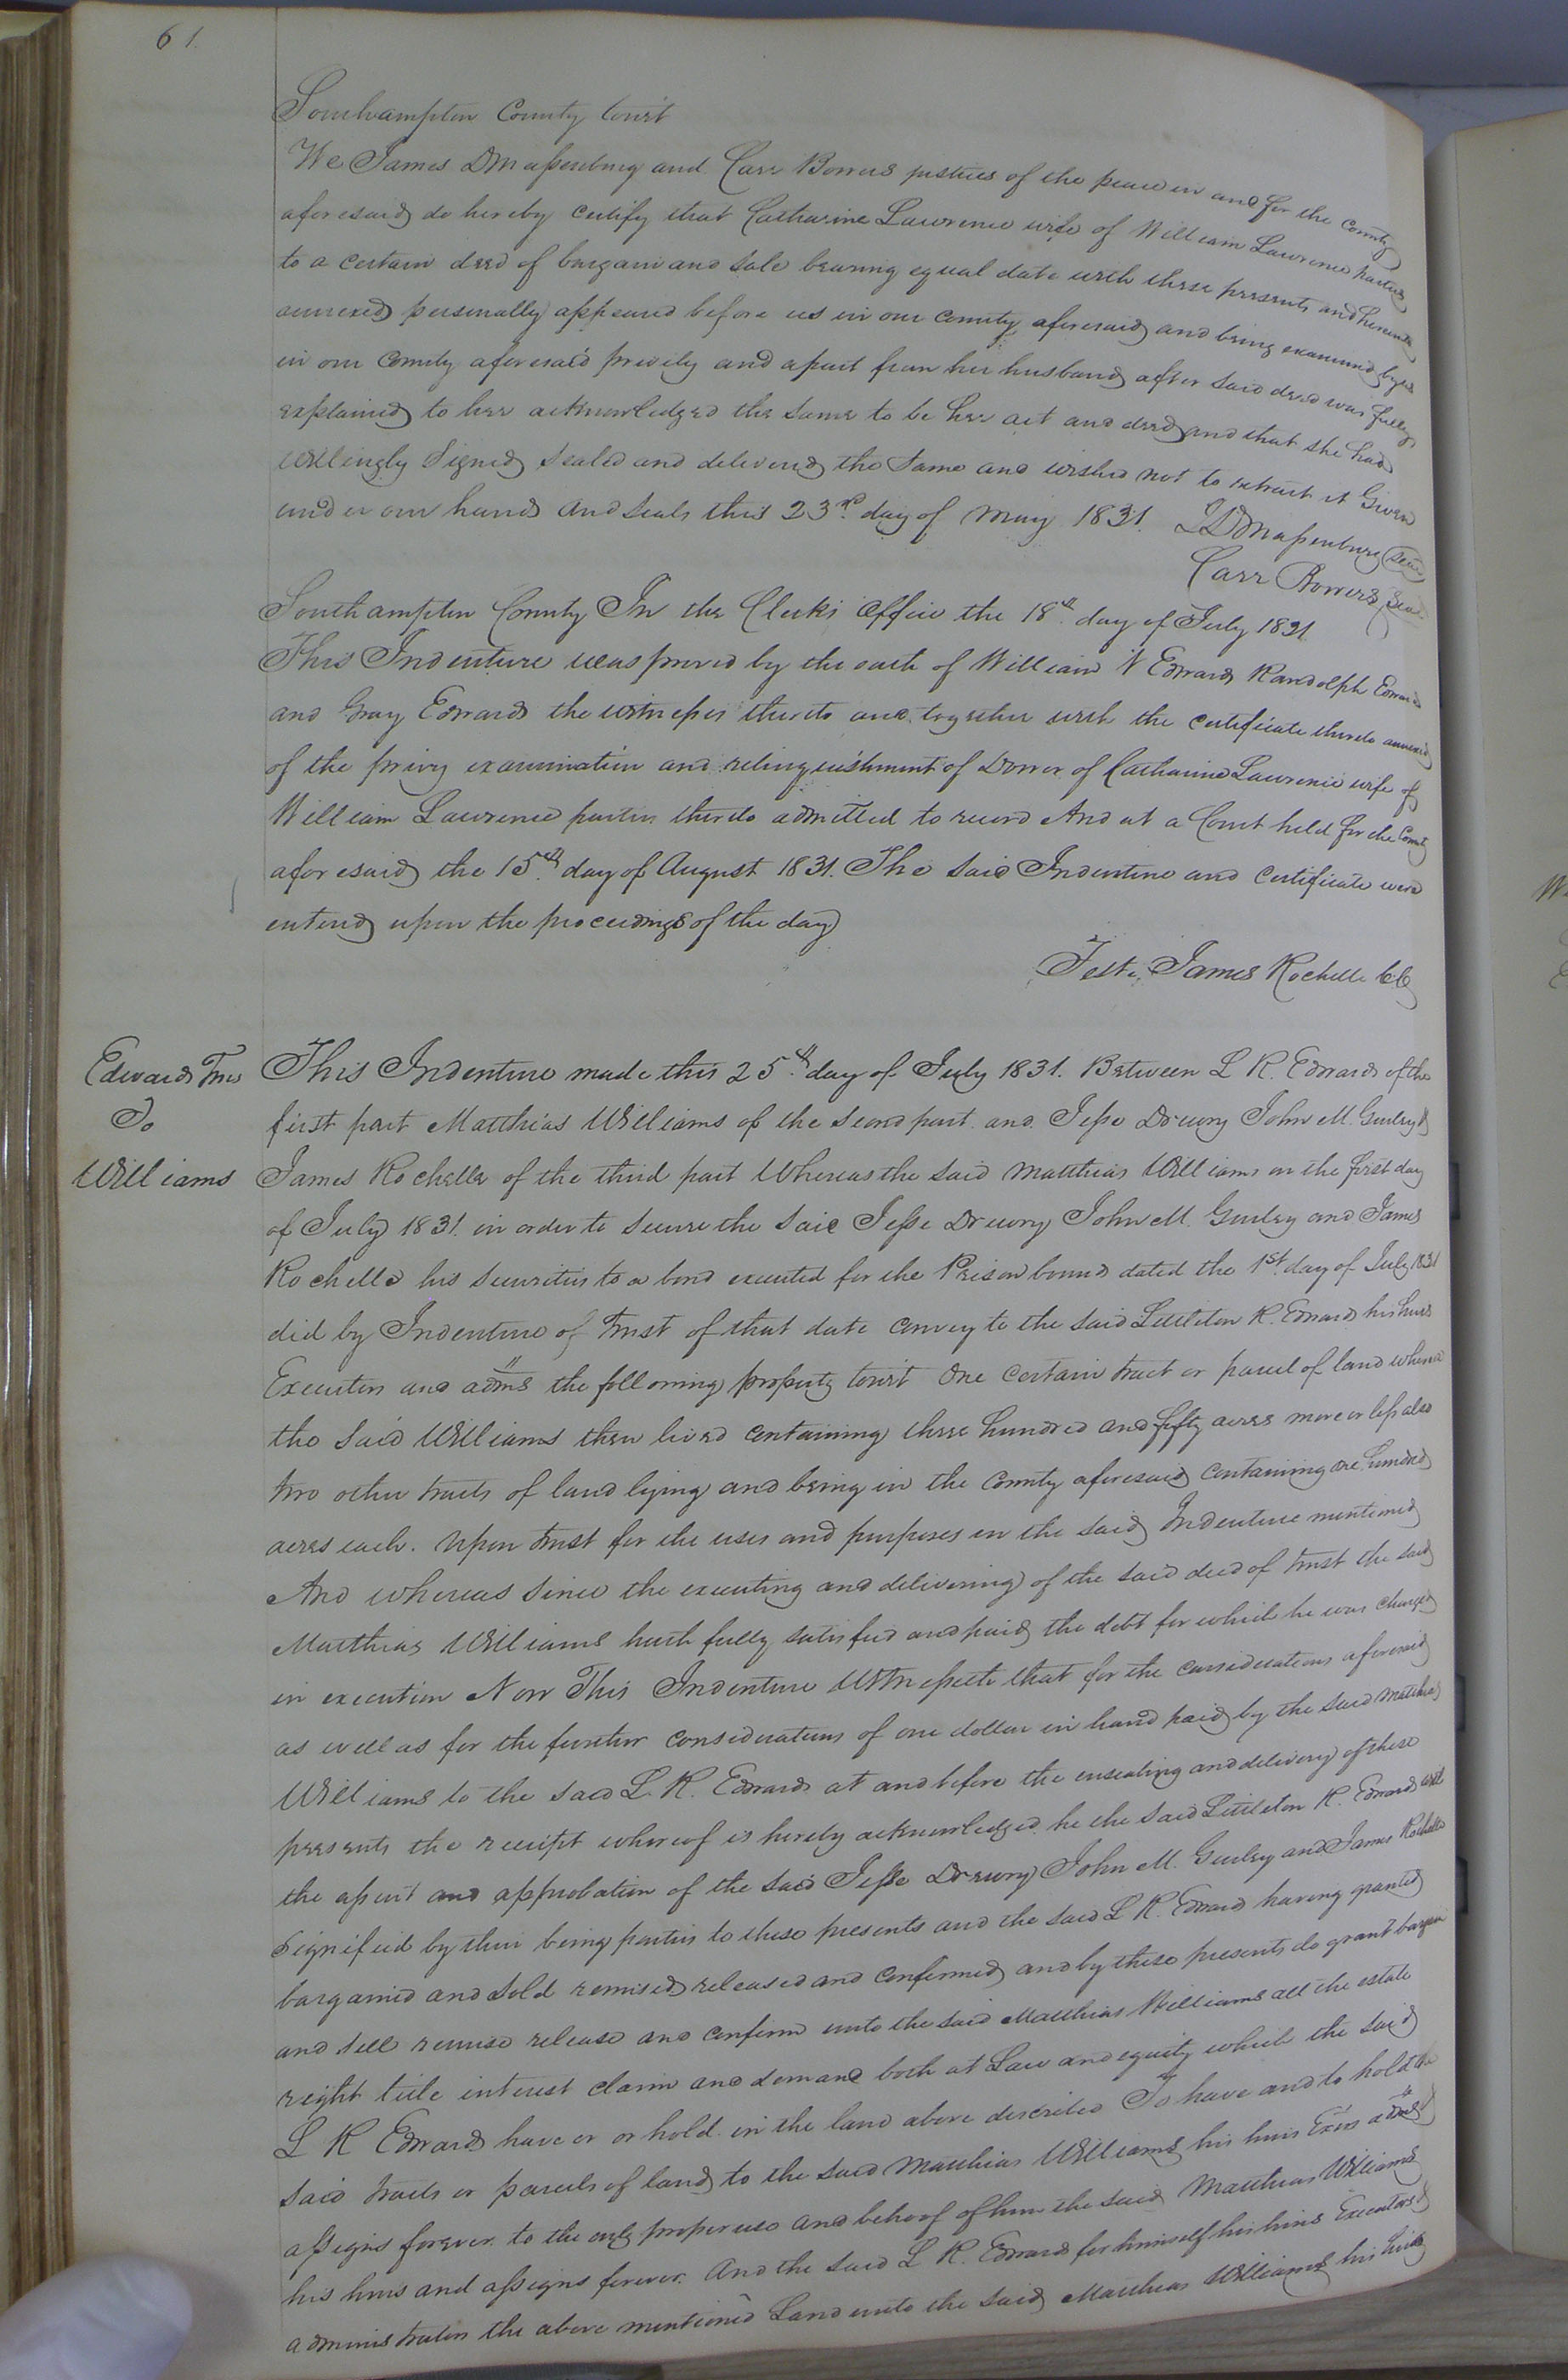 61.
Southampton County towit
We James D Massenburg and Carr Bowers justices of the peace in and for the County
aforesaid do hereby certify that Catharine Lawrence wife of William Lawrence parties
to a certain deed of bargain and sale bearing equal date with these presents and hereunto
annexed personally appeared before us in our County aforesaid and being examined by us
in our County aforesaid privily and apart from her husband after said deed was fully
explained to her acknowledged the same to be her act and deed and that she had
willingly Signed sealed and delivered the same and wished not to retract it Given
under our hands and seals this 23rd day of May 1831. J D Massenburg Seal
Carr Bowers Seal
Southampton County In the Clerks Office the 18th day of July 1831
This Indenture was proved by the oath of William N Edwards Randolph Edwards
and Gray Edwards the witnesses thereto and together with the certificate thereto annexed
of the privy examination and relinquishment of Dower of Catharine Lawrence wife of
William Lawrence parties thereto admitted to record And at a Court held for the County
aforesaid the 15th day of August 1831. The said Indenture and Certificate were
entered upon the proceedings of the day
Teste, James Rochelle CC
Edwards Trus
To
Williams
This Indenture made this 25th day of July 1831. Between L R. Edwards of the
first part Matthias Williams of the second part and Jesse Drewry John M. Gurley &
James Rochelle of the third part Whereas the said Matthias Williams on the first day
of July 1831. in order to secure the said Jesse Drewry John M. Gurley and James
Rochelle his securities to a bond executed for the Prison bounds dated the 1st day of July 1831
did by Indenture of Trust of that date convey to the said Littleton R. Edwards his heirs
Executors and adms the following property towit One certain tract or parcel of land whereon
the said Williams then lived containing three hundred and fifty acres more or less also
two other tracts of land lying and being in the County aforesaid containing one hundred
acres each. Upon trust for the uses and purposes in the said Indenture mentioned
And whereas since the executing and delivering of the said deed of trust the said
Matthias Williams hath fully satisfied and paid the debt for which he was charged
in execution Now This Indenture Witnesseth that for the considerations aforesaid
as well as for the further considerations of one dollar in hand paid by the said Matthias
Williams to the said L. R. Edwards at and before the ensealing and delivery of these
presents the receipt whereof is hereby acknowledged he the said Littleton R. Edwards with
the assent and approbation of the said Jesse Drewry John M. Gurley and James Rochelle
signified by their being parties to these presents and the said L R. Edwards having granted
bargained and sold remised released and confirmed and by these presents do grant bargain
and sell remise release and confirm unto the said Matthias Williams all the estate
right title interest claim and demand both at Law and equity which the said
L R Edwards have or or hold in the land above described To have and to hold the
said tracts or parcels of land to the said Matthias Williams his heirs Exors adms &
assigns forever. to the only proper use and behoof of him the said Matthias Williams
his heirs and assigns forever. And the said L R. Edwards for himself his heirs Executors &
administrators the above mentioned Land unto the said Matthias Williams his heirs